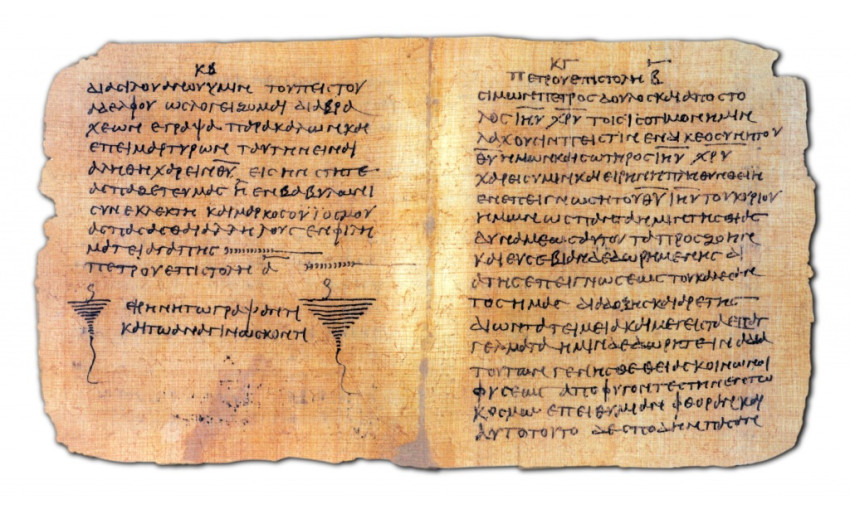 ΚΒ
ΔΙΑϹΙΛΟΥΑΝΟΥΥΜΙΝ ΤΟΥΠΕΙϹΤΟΥ
ΑΔΕΛΦΟΥ ΩϹΛΟΓΕΙΖΟΜΑΙ ΔΙΑΒΡΑ
ΧΕΩΝ ΕΓΡΑΨΑ ΠΑΡΑΚΑΛΩΝΚΑΙ
ΕΠΕΙΜΑΡΤΥΡΩΝ ΤΑΥΤΗΝΕΙΝΑΙ
ΑΛΗΘΗ ΧΑΡΕΙΝΘ̅Υ̅ ΕΙϹΗΝ ϹΤΗΤΕ
ΑϹΠΑΖΕΤΕΥΜΑϹ Η ΕΝΒΑΒΥΛΩΝΙ
ϹΥΝΕΚΛΕΚΤΗ ΚΑΙΜΑΡΚΟϹΟΥΙΟϹΜΟΥ
ΑϹΠΑϹΑϹΘΑΙΑΛΛΗΛΟΥϹ ΕΝΦΙΛΗ
ΜΑΤΕΙΑΓΑΠΗϹ
ΠΕΤΡΟΥΕΠΙϹΤΟΛΗ Α̅
ΕΙΡΗΝΗΤΩΓΡΑΨΑΝΤΙ
ΚΑΙΤΩΑΝΑΓΙΝΩϹΚΟΝΤΙ
ΚΓ
ΠΕΤΡΟΥΕΠΙϹΤΟΛΗ Β̅
ϹΙΜΩΝΠΕΤΡΟϹΔΟΥΛΟϹΚΑΙΑΠΟϹΤΟ
ΛΟϹ Ι̅Η̅Υ̅ Χ̅Ρ̅Υ̅ ΤΟΙϹΙϹΟΤΙΜΟΝΗΜΙΝ
ΛΑΧΟΥϹΙΝΠΕΙϹΤΙΝ ΕΝΔΙΚΕΟϹΥΝΗΤΟΥ
Θ̅Υ̅ ΗΜΩΝΚΑΙϹΩΤΗΡΟϹ Ι̅Η̅Υ̅ Χ̅Ρ̅Υ̅
ΧΑΡΕΙϹΥΜΙΝΚΑΙΕΙΡΗΝΗΠΛΗΘΥΝΘΕΙΗ
ΕΝΕΠΕΙΓΝΩϹΗΤΟΥΘ̅Υ̅ Ι̅Η̅Υ̅ ΤΟΥΚΥΡΙΟΥ
ΗΜΩΝ ΩϹΠΑΝΤΑΗΜΙΝΤΗϹΘΕΙΑϹ
ΔΥΝΑΜΕΩϹΑΥΤΟΥ ΤΑΠΡΟϹΖΩΗΝ
ΚΑΙΕΥϹΕΒΙΑΝΔΕΔΩΡΗΜΕΝΗϹ ΔΙ
ΑΤΗϹΕΠΕΙΓΝΩϹΕΩϹ ΤΟΥΚΑΛΕϹΑΝ
ΤΟϹΗΜΑϹ ΔΙΑΔΟΞΗϹΚΑΙΑΡΕΤΗϹ
ΔΙΩΝΤΑΤΕΙΜΕΙΑΚΑΙΜΕΓΕΙϹΤΑΕΠΑΓ
ΓΕΛΜΑΤΑ ΗΜΙΝΔΕΔΩΡΗΤΕΙΝΑΔΙΑ
ΤΟΥΤΩΝ ΓΕΝΗϹΘΕ ΘΕΙΑϹΚΟΙΝΩΝΟΙ
ΦΥϹΕΩϹ ΑΠΟΦΥΓΟΝΤΕϹΤΗΝΕΝΤΩ
ΚΟϹΜΩ ΕΠΕΙΘΥΜΙΑΝ ΦΘΟΡΑΝΚΑΙ
ΑΥΤΟΤΟΥΤΟ ΔΕϹΠΟΔΗΝΠΑϹΑΝ